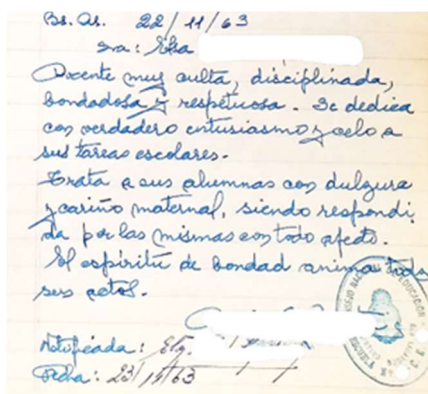 Bs. As. 22/11/63
Sra: Elsa
Docente muy culta, disciplinada,
bondadosa y respetuosa. Se dedica
con verdadero entusiasmo y celo a
sus tareas escolares.
Trata a sus alumnas con dulzura
y cariño maternal, siendo respondi
da por las mismas con todo afecto.
El espíritu de bondad anima todos
sus actos.
Notificada:
Fecha: 23/11/63